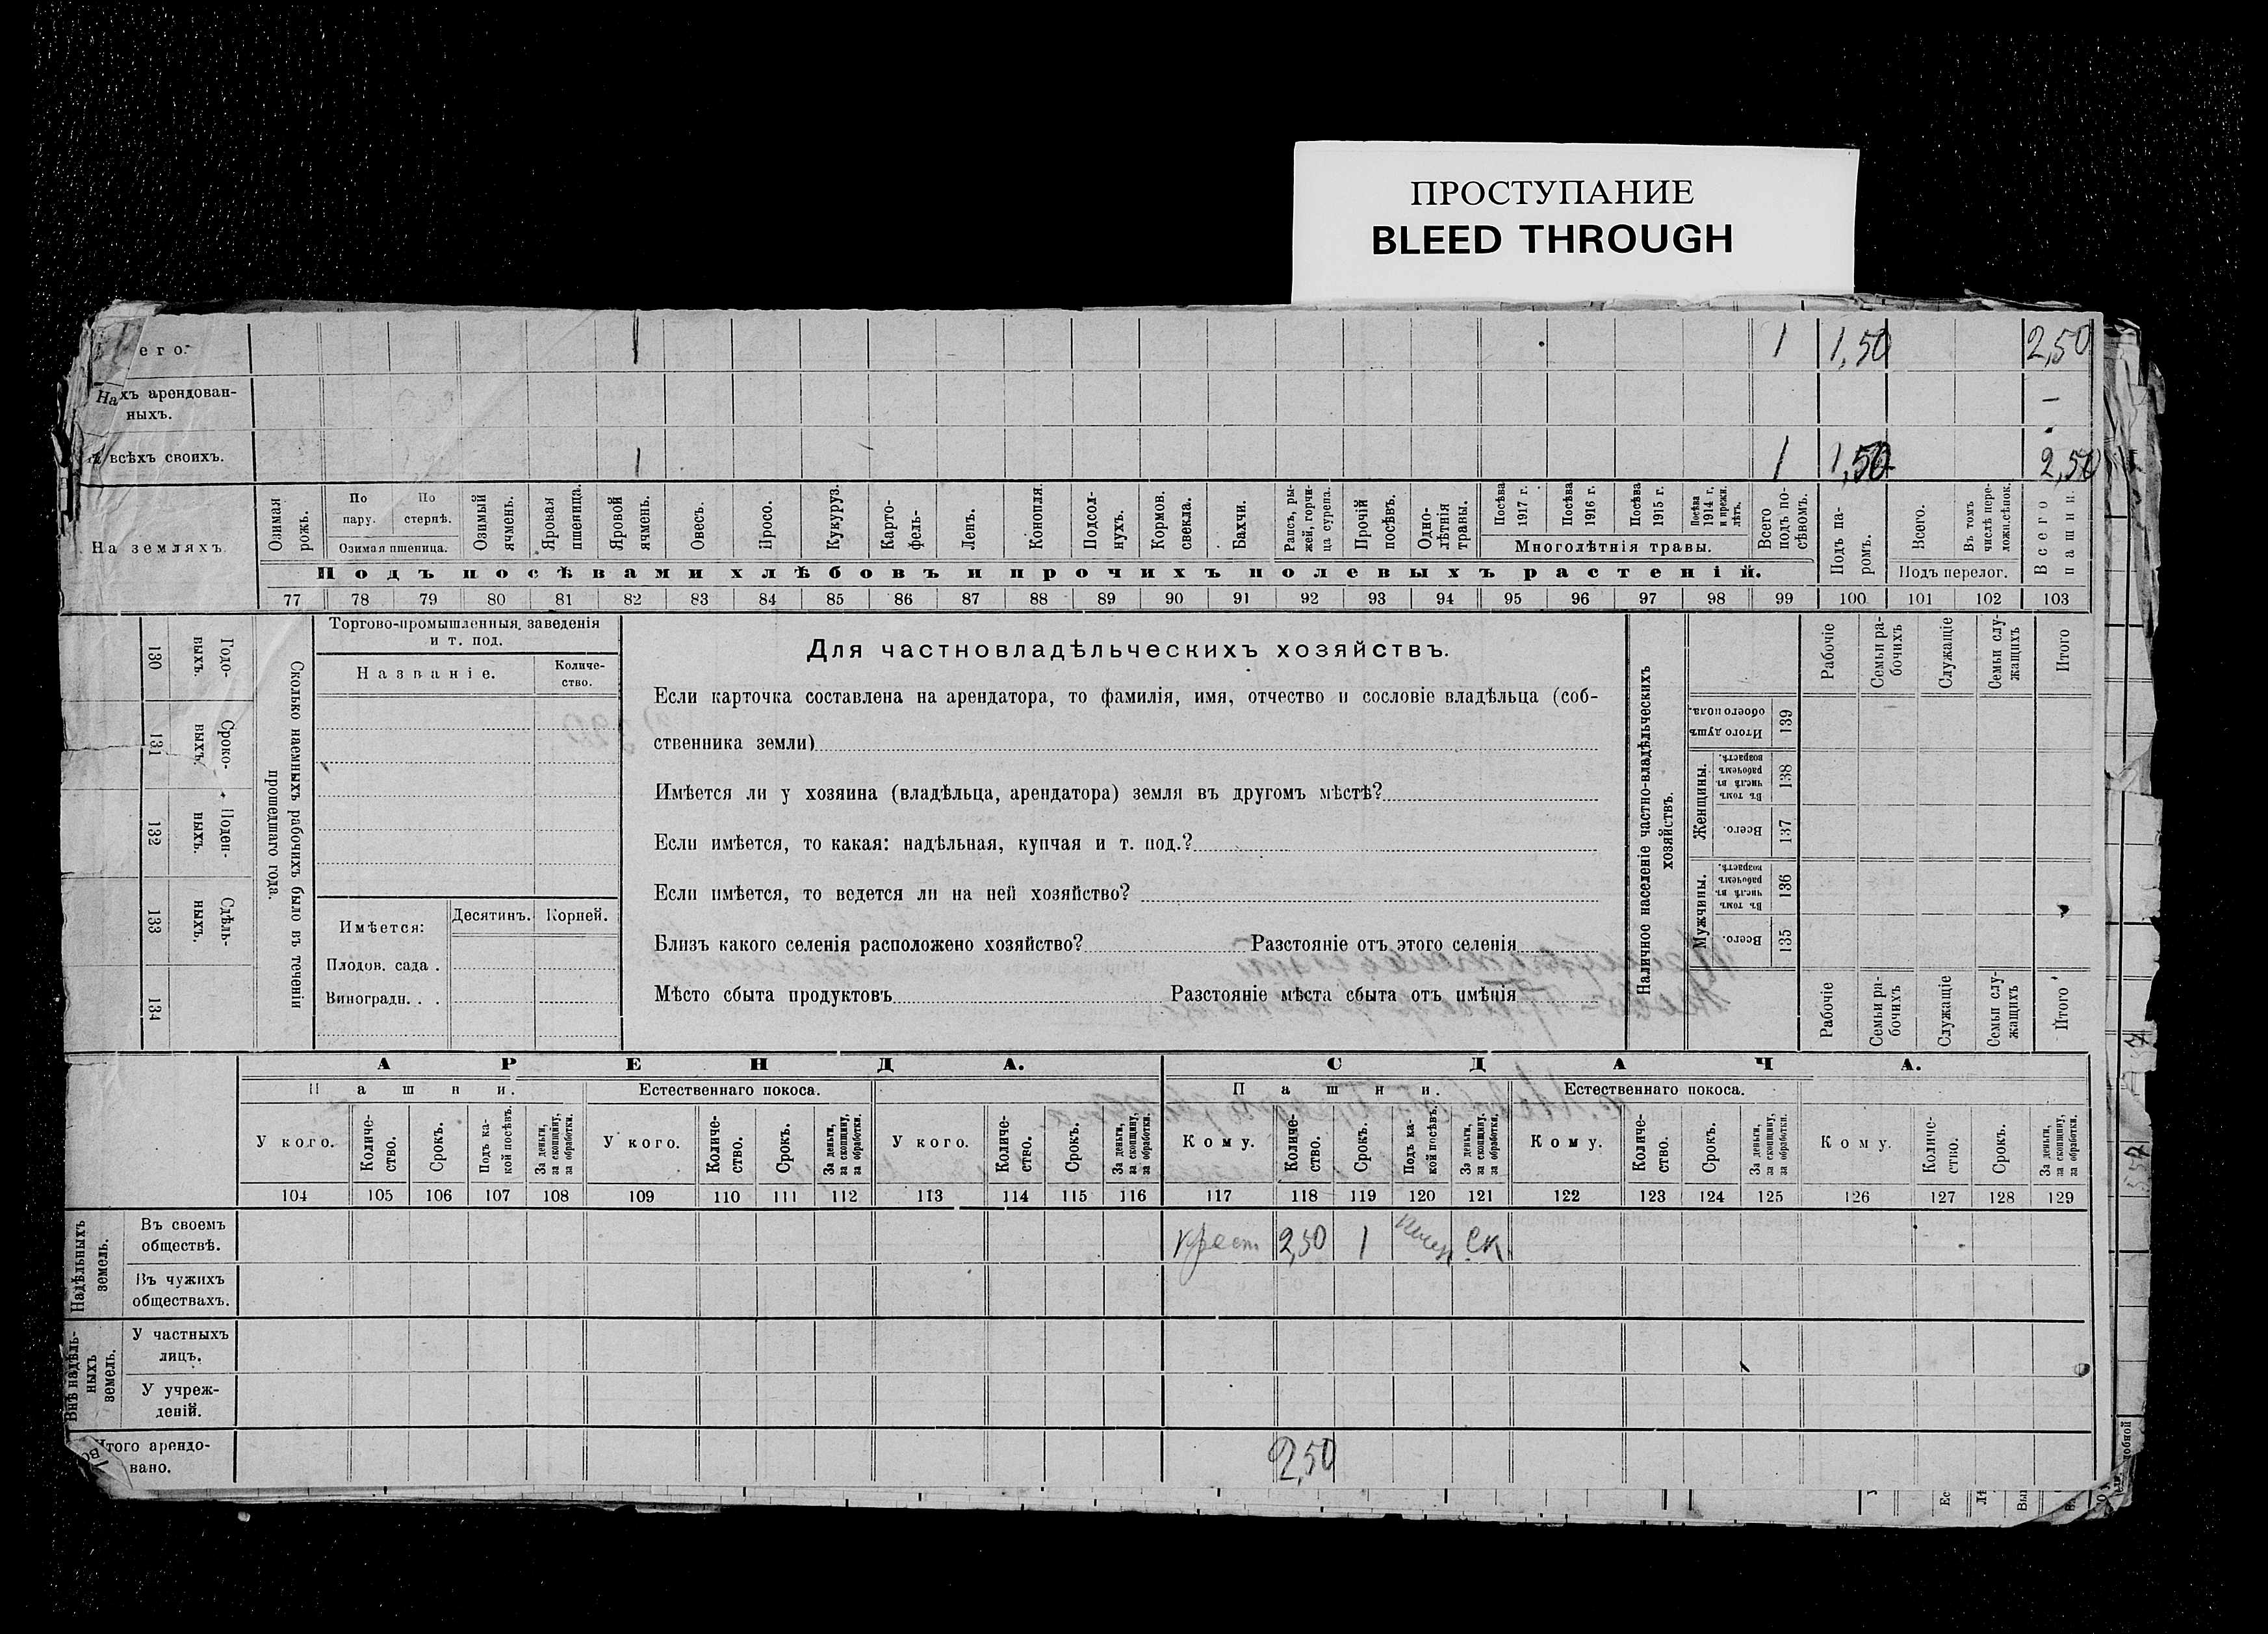 ПРОСТУПАНИЕ
BLEED THROUGH
его. 1 1 1,50 2,50
На хъ арендован-
ныхъ. —
всѣхъ своихъ. 1 1 1,50 2,50
На земляхъ.
Озимая рожь.
По пару.
По стернѣ.
Озимая пшеница.
Озимый ячмень.
Яровая пшеница.
Яровой ячмень.
Овесъ.
Просо.
Кукуруз.
Карто-
фель-
Ленъ.
Конопля.
Подсол-
нухъ.
Кормов. свекла.
Бахчи.
Рапсъ, ры-
жей, горчи-
ца сурепа.
Прочій посѣвъ.
Одно-
лѣтнія травы.
Посѣва 1917 г.
Посѣва 1916 г.
Посѣва 1915 г.
Посѣва 1914 г. и прежн. лѣтъ.
Многолѣтнія травы.
Всего подъ по-
сѣвомъ.
Подъ па-
ромъ.
Всего.
Въ томъ числѣ пере-
ложн.сѣнок.
Подъ перелог.
Всего пашни.
Подъ посѣвами хлѣбовъ и прочихъ полевыхъ растеній.
77 78 79 80 81 82 83 84 85 86 87 88 89 90 91 92 93 94 95 96 97 98 99 100 101 102 103
Годо-
выхъ.
130
Сроко-
выхъ.
131
Поден-
ныхъ.
132
Сдѣль-
ныхъ.
133
134
Сколько наемныхъ рабочихъ было въ теченіи
прошедшаго года.
Торгово-промышленныя заведенія
и т. под.
Названіе.
Количе-
ство.
Имѣется:
Десятинъ.
Корней.
Плодов. сада .
Виноградн. . .
Для частновладѣльческихъ хозяйствъ.
Если карточка составлена на арендатора, то фамилія, имя, отчество и сословіе владѣльца (соб-
ственника земли)
Имѣется ли у хозяина (владѣльца, арендатора) земля въ другомъ мѣстѣ?
Если имѣется, то какая: надѣльная, купчая и т. под.?
Если имѣется, то ведется ли на ней хозяйство?
Близъ какого селенія расположено хозяйство? Разстояніе отъ этого селенія
Мѣсто сбыта продуктовъ Разстояніе мѣста сбыта отъ имѣнія
Наличное населеніе частно-владѣльческихъ
хозяйствъ.
Рабочіе
Семьи ра-
бочихъ
Служащіе
Семьи слу-
жащихъ
Итого
Итого душъ обоего пола.
139
Женщины.
Въ томъ числѣ въ рабочемъ возрастѣ.
138
Всего.
137
Мужчины.
Въ томъ числѣ въ рабочемъ возрастѣ.
136
Всего.
135
Рабочіе
Семьи ра-
бочихъ
Служащіе
Семьи слу-
жащихъ
Итого
АРЕНДА.
СДАЧА.
Пашни.
Естественнаго покоса.
Пашни.
Естественнаго покоса.
У кого.
Количе-
ство.
Срокъ.
Подъ ка-
кой посѣвъ.
За деньги,
за скопщину,
за обработки.
У кого.
Количе-
ство.
Срокъ.
За деньги,
за скопщину,
за обработки.
У кого.
Количе-
ство.
Срокъ.
За деньги,
за скопщину,
за обработки.
Кому.
Количе-
ство.
Срокъ.
Подъ ка-
кой посѣвъ.
За деньги,
за скопщину,
за обработки.
Кому.
Количе-
ство.
Срокъ.
За деньги,
за скопщину,
за обработки.
Кому.
Количе-
ство.
Срокъ.
За деньги,
за скопщину,
за обработки.
104 105 106 107 108 109 110 111 112 113 114 115 116 117 118 119 120 121 122 123 124 125 126 127 128 129
Надѣльныхъ
земель.
Въ своемъ
обществѣ. крест 2,50 1 ск
Въ чужихъ
обществахъ.
Внѣ надѣль-
ныхъ
земель.
У частныхъ
лицъ.
У учреж-
деній.
Итого арендо-
вано. 2,50